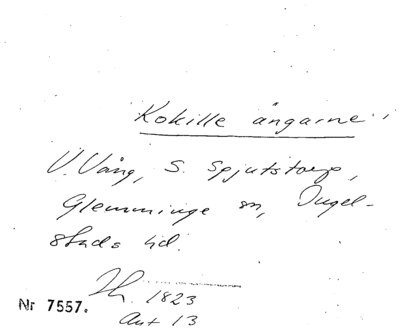 Kokille ängarne
V. Vång, S. Spjutstorp,
Glemminge sn, Ingel-
stads hd.
Th. 1823
Ant 13
Nr 7557.